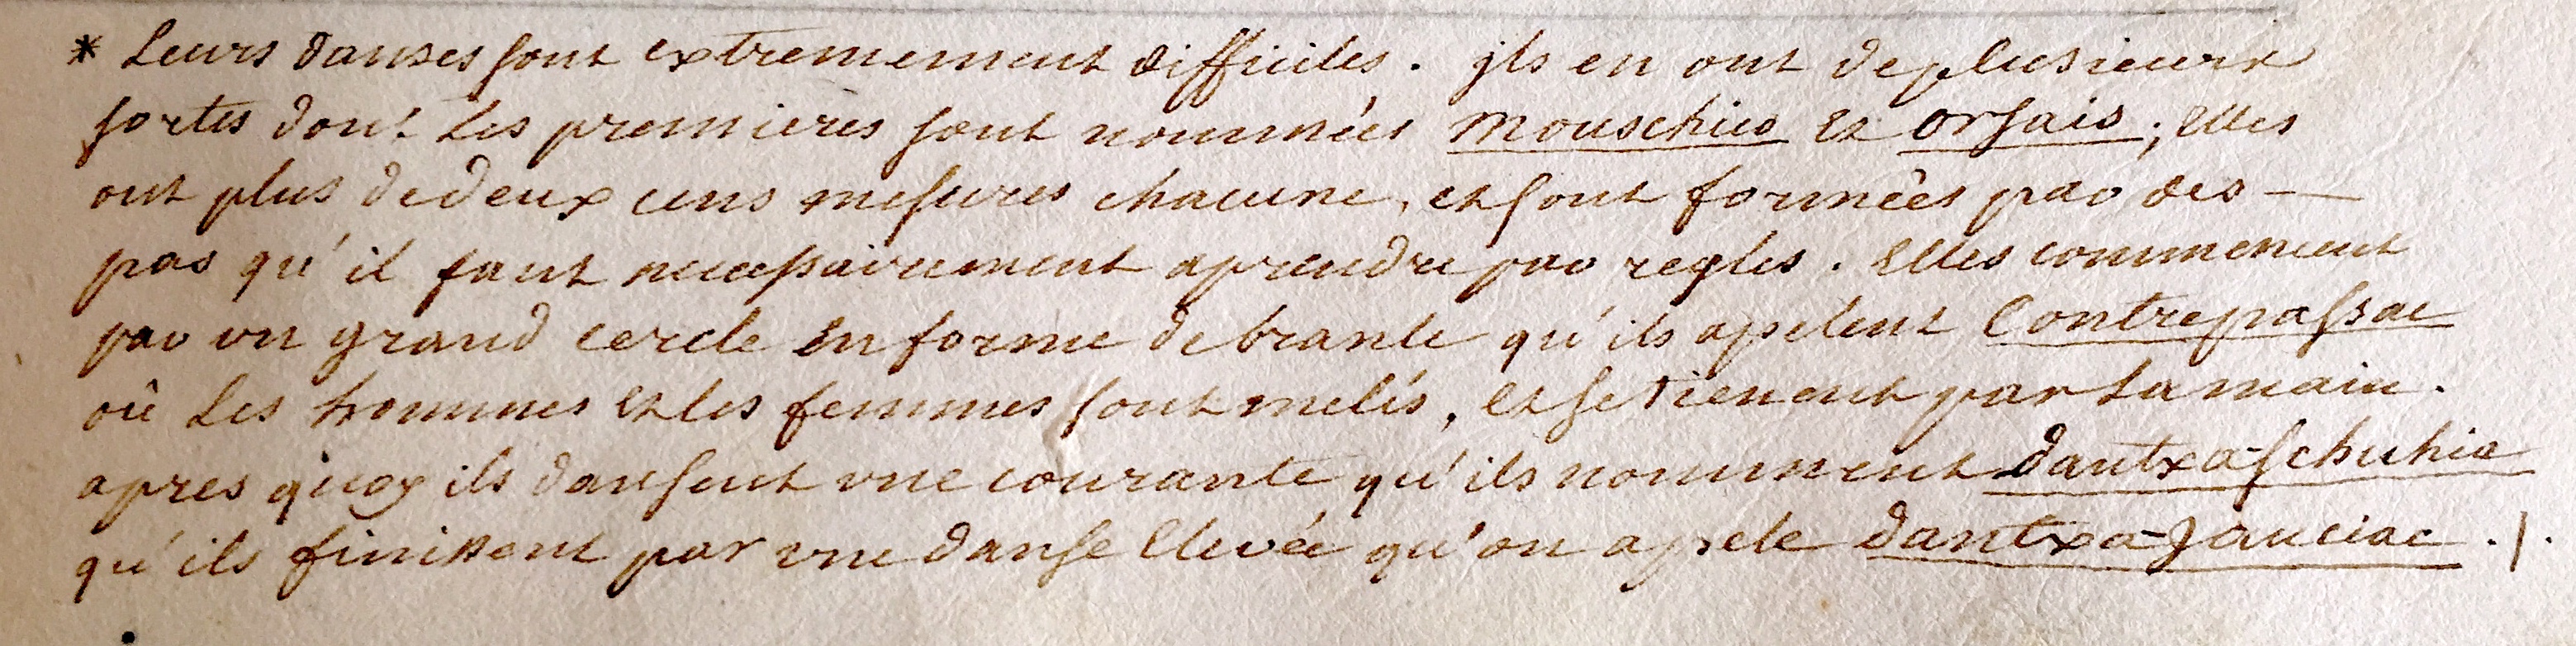 * Leurs danses sont extremement difficiles. jls en ont de plusieurs
sortes dont les premieres sont nommées Mouschico et orsais; elles
ont plus de deux cens mesures chacune, et sont formées par des —
pas qu'il faut necessairement aprendre par regles. Elles commencent
par un grand cercle en forme de branle qu'ils apelent Contrepassac
où les hommes et les femmes sont melés, et se tienent par la main.
apres quoy ils dansent vne courante qu'ils nomment dantxa-schuhia
qu'ils finissent par vne danse elevée qu'on apele dantxa-Jauciac ./.